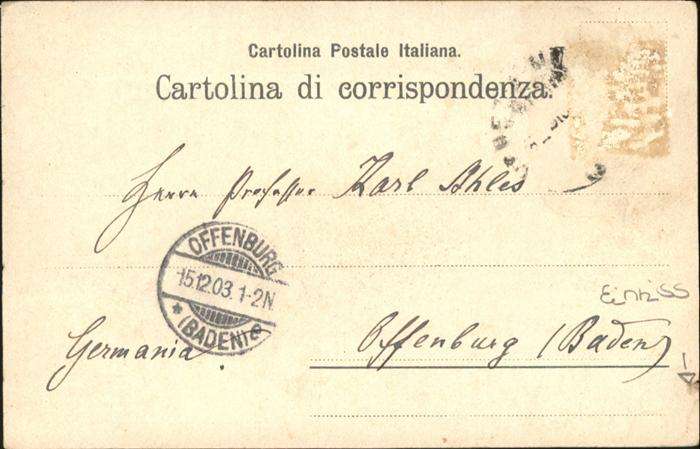 Cartolina Postale Italiana.
Cartolina di corrispondenza.
Herrn Professor Karl Ahles
OFFENBURG
15.12.03. 1-2N.
* (BADEN) 2 *
Einriss
Germania.
Offenburg (Baden)